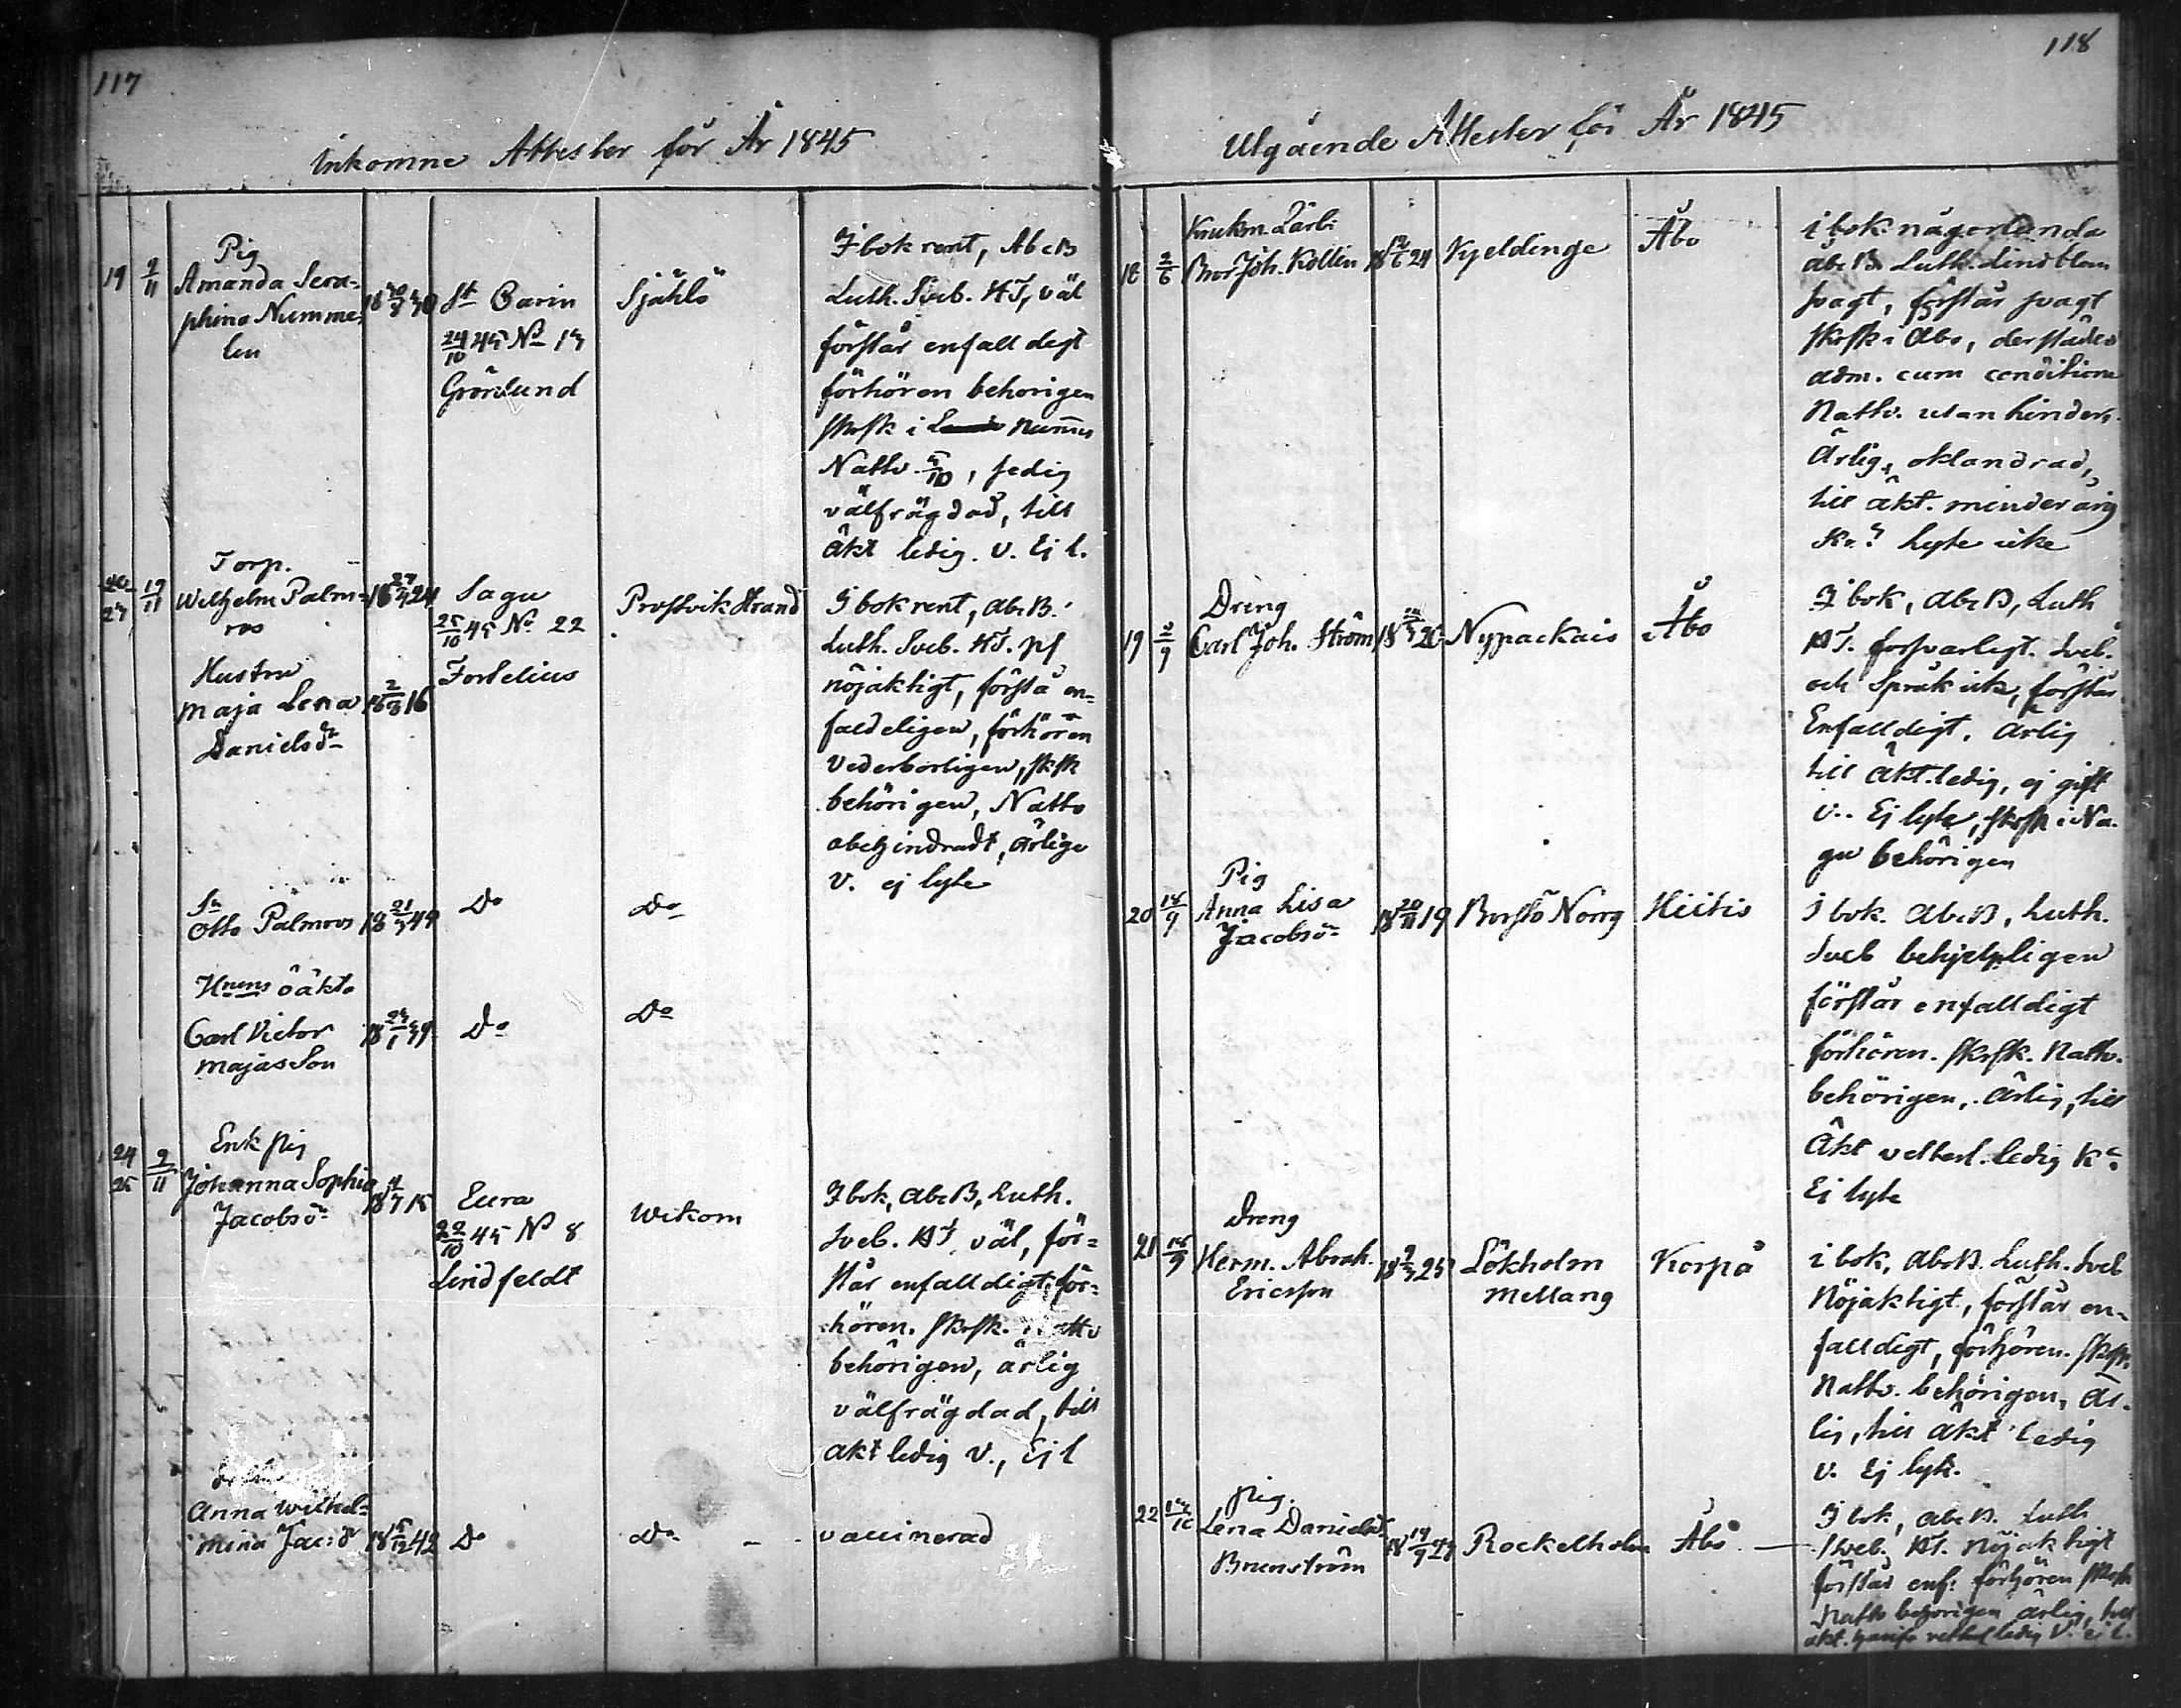 117
Inkomne Attester för År 1845
19 2/11
Pig
Amanda Sera-
phina Numme
lin
St Carin
24/10 45 No
Grönlund
Själslö
I bok rent, Abc B
Luth. Sveb. HT, väl
förstår enfalldigt
förhören behörigen
skrsk i
Nattv. , sedig
välfrägdad, till
äkt ledig. v. Ej l.
Torp.
Wilhelm Palm-
ros
Hustru
Maja Lena
Danielsdr
18 2/8 16
Sagu
25/10 45 No 22
Fortelius
Prostvik Strand
I bok rent, abc B.
Luth. Sveb. HT. ps
nöjaktigt, förstå en-
faldeligen, förhören
vederbörligen, sksk
behörigen, Nattv
obehindradt, ärlige
v. ej lyte
Sn
Otto Palmros
Do
Do
Hnens oäkta
Carl Victor
Majas Son
Do
Do
24
25
2/11
Enk pig
Johanna Sophia
Jacobsd
Eura
22/10 45 No 8
Lindfeldt
Wikom
I bok, abc B, Luth.
Sveb. HT väl, för-
står enfalldigt, för-
hören. skrsk. Nattv
behörigen, ärlig
välfrägdad, till
äkt ledig v., Ej l
Anna Wilhel-
mina Jac:d
Do
Do
vaccinerad
118
Utgående Attester för År 1845
18 2/6
Krukm Lärli
Bror Joh. Kollin
Kyeldinge
Åbo
i bok någorlunda
abc B. Luth. Lindblom
svagt, förstår svagt
skrsk i Åbo, derstädes
adm. cum conditione
Nattv. utan hinder.
Ärlig, oklandrad,
till äkt. minderårig
lyte icke
19
Dreng
Carl Joh. Ström
Nypackais
Åbo
I bok, abc B, Luth
HT. försvarligt. Sveb.
och Språk icke, förstår
Enfalldigt. Ärlig
till äkt. ledig, ej gift
v. Ej lyte, skrsk i Na-
gu behörigen
20
Pig
Anna Lisa
Jacobsd
18 20/11 19
Borstö Norrg
Hiitis
I bok. abc B, Luth.
Sveb behjelpligen
förstår enfalldigt
förhören. skrsk. Nattv.
behörigen, ärlig, till
Äkt vetterl. ledig
Ej lyte
21
Dreng
Herm. Abrah.
Ericsson
Lökholm
Mellang
Korpå
i bok, abc B. Luth. Sveb
Nöjaktigt, förstår en-
falldigt, förhören. skrsk.
Nattv. behörigen, är-
lig, till äkt ledig
v. Ej lyte.
22
pig.
Lena Danielsd
Brunström
Rockelholm
Åbo
I bok, abc B. Luth
Sveb. HT. Nöjaktigt
förstår enf. förhören skrsk
Nattv behörigen ärlig, till
ledig v. ej l.